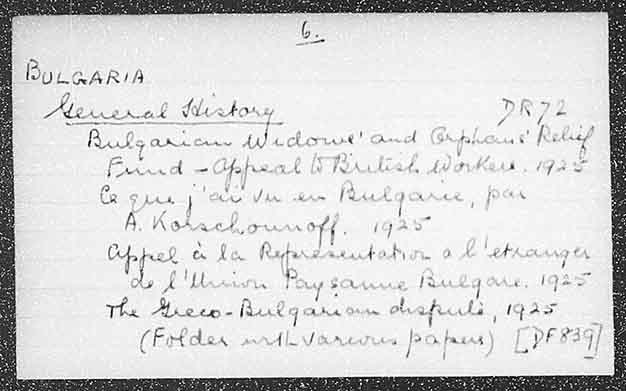 6.
BULGARIA
General History DR72
Bulgarian Widows' and Orphans' Relief
Fund - Appeal to British Workers. 1925
Ce que j'ai vu en Bulgarie, par
A. Korschounoff. 1925
Appel à la Représentation a l'etranger
de l'Union Paysanne Bulgare. 1925
The Greco-Bulgarian dispute, 1925
(Folder with various papers) [DF839]